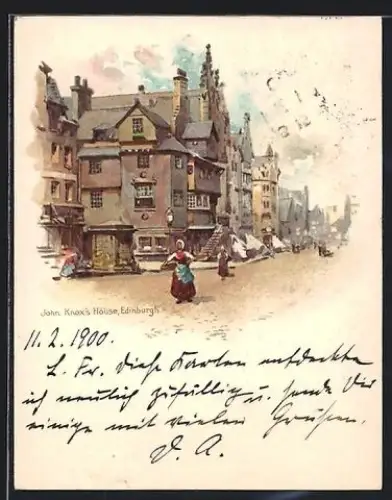 John Knox's House, Edinburgh
11.2.1900.
L. Fr. diese Karten entdeckte
ich neulich zufällig u. sende Dir
einige mit vielen Grüssen.
D. A.